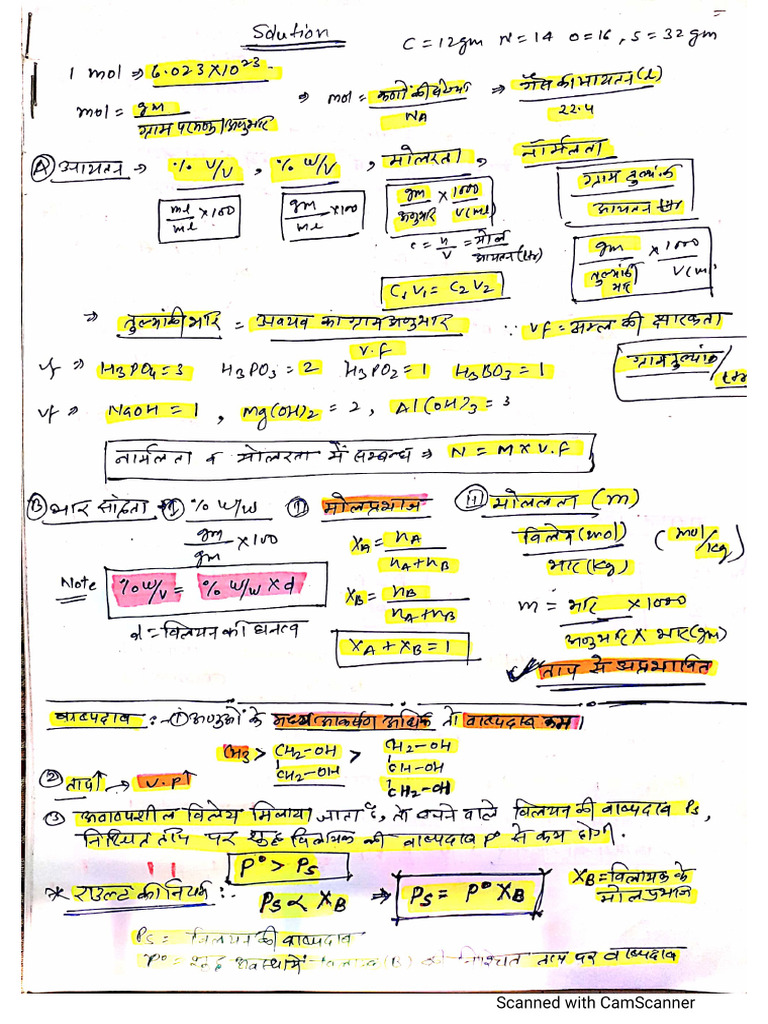 Solution
C = 12gm N = 14 O = 16, S = 32 gm
1 mol ⇒ 6.023 X 10²³
mol = gm / ग्राम परमाणु/अणुभार ⇒ mol = कणों की संख्या / NA ⇒ गैस का आयतन (l) / 22.4
Ⓐ आयतन → % V/V , % W/V , मोलरता , नॉर्मलता
ml / ml X 100
gm / ml X 100
gm / अणुभार X 1000 / V(ml)
ग्राम तुल्यांक / आयतन ltr
C = n / V = मोल / आयतन (ltr)
gm / तुल्यांकी भार X 1000 / V(ml)
C₁V₁ = C₂V₂
⇒ तुल्यांकी भार = अवयव का ग्राम अणुभार / V.F ∵ Vf = अम्ल की क्षारकता
Vf ⇒ H₃PO₄ = 3 H₃PO₃ = 2 H₃PO₂ = 1 H₃BO₃ = 1
ग्राम तुल्यांक / ltr
Vf ⇒ NaOH = 1 , Mg(OH)₂ = 2 , Al(OH)₃ = 3
नार्मलता व मोलरता में सम्बन्ध ⇒ N = M X V.F
Ⓑ भार % W/W मोलप्रभाज मोललता (m)
gm / gm X 100
XA = nA / nA + nB
विलेय (mol) / भार (kg) (mol/kg)
Note % W/V = % W/W X d
XB = nB / nA + nB
m = भार X 1000 / अणुभार X भार (gm)
d = विलयन का घनत्व
XA + XB = 1
✓ ताप से अप्रभावित
वाष्पदाब :- ① अणुओं के मध्य आकर्षण अधिक तो वाष्पदाब कम।
CH₃ > CH₂-OH > CH₂-OH
CH₂-OH CH-OH
CH₂-OH
② ताप↑ → V.P↑
③ अवाष्पशील विलेय मिलाया जाता है, तो बनने वाले विलयन की वाष्पदाब Ps,
निश्चित ताप पर शुद्ध विलायक की वाष्पदाब P° से कम होगी.
P° > Ps
* राउल्ट का नियम :- Ps ∝ XB ⇒ Ps = P° XB
XB = विलायक के मोल प्रभाज
Ps = विलयन की वाष्पदाब
P° = शुद्ध अवस्था में विलायक (B) का निश्चित ताप पर वाष्पदाब
Scanned with CamScanner